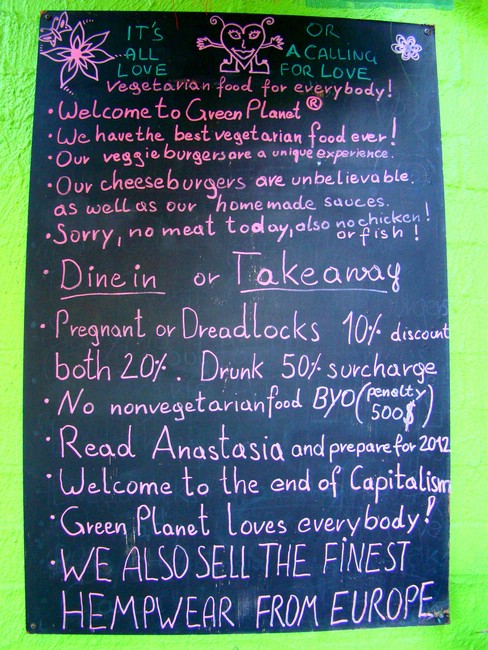 IT'S OR
ALL A CALLING
LOVE FOR LOVE
Vegetarian food for everybody!
• Welcome to Green Planet ®
• We have the best vegetarian food ever!
• Our veggieburgers are a unique experience.
• Our cheeseburgers are unbelievable.
as well as our home made sauces.
• Sorry, no meat today, also no chicken!
or fish!
• Dine in or Takeaway
• Pregnant or Dreadlocks 10% discount
both 20%. Drunk 50% surcharge
• No nonvegetarian food BYO (penalty
500$)
• Read Anastasia and prepare for 2012
• Welcome to the end of Capitalism
• Green Planet loves everybody!
• WE ALSO SELL THE FINEST
HEMPWEAR FROM EUROPE